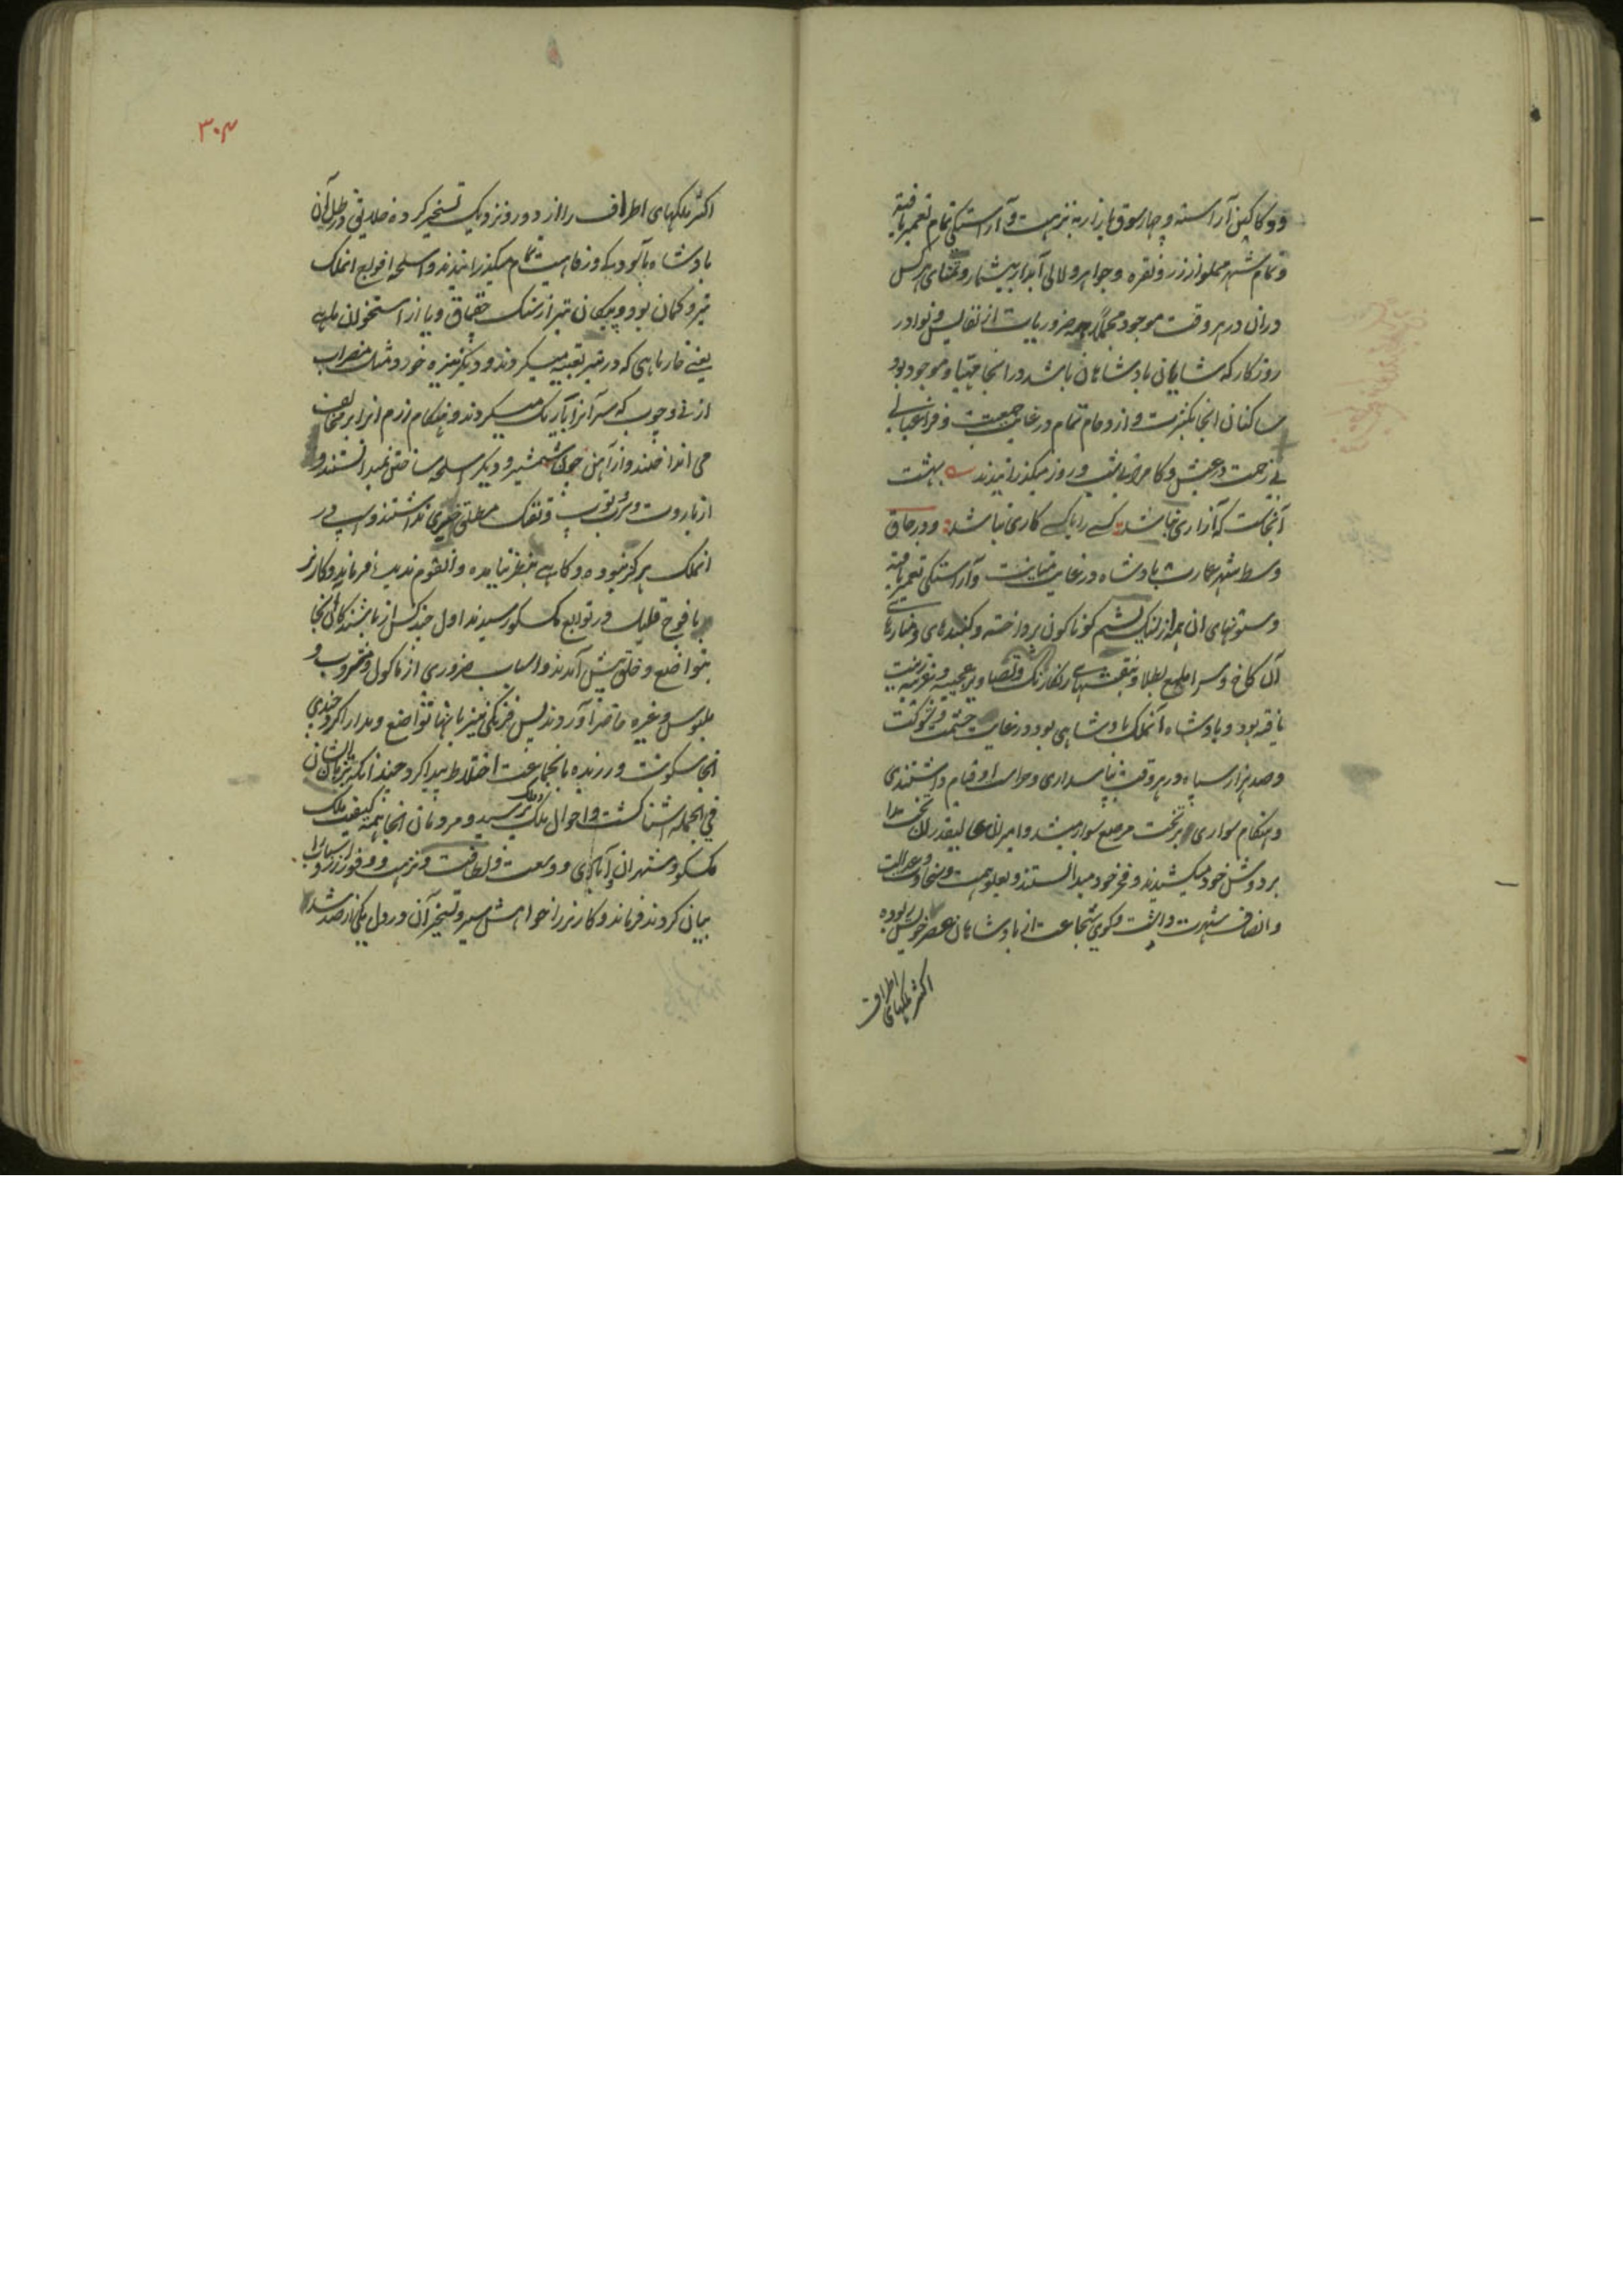 ودکاکین آراسته و چهارسوق بازار به نزهت و آراستگی تمام تعمیر یافته
و تمام شهر مملو از زر و نقره و جواهر و لالی آبدار بیشمار و متاع هر کس
دران در هر وقت موجود مجملاً همه ضروریات از نفایس و نوادر
روزکار که شایان بادشاهان باشد در انجا مهیا و موجود بود
ساکنان انجا بکثرت و ازدحام تمام در غایت جمعیت و فراغبالی
بی زحمت در عیش و کامرانی شب و روز میکذرانیدند بهشت
آنجاست که آزاری نباشد کسی را با کسی کاری نباشد و در حاق
وسط شهر عمارت بادشاه در غایت متانت و آراستگی تعمیر یافته
و ستونهای ان همه از سنک یشم کوناکون پرداخته و کنبدهای و منارهای
آن کاخ و سرا ملمع بطلا و بنقشهای رنکارنک و تصاویر عجیبه و غریبه زینت
یافته بود و بادشاه آنملک بادشاهی بود در غایت حشمت و شوکت
و صد هزار سپاه در هر وقت بپاسداری و حراست او قیام داشتندی
و هنکام سواری بر تخت مرصع سوار میشد و امیران عالیقدر ان تخت را
بر دوش خود میکشیدند و فخر خود میدانستند و بعلو همت و سخاوت و عدالت
و انصاف شهرت داشت و کوی شجاعت از بادشاهان عصر خویش ربوده
اکثر ملکهای اطراف
۳۰۳
اکثر ملکهای اطراف را از دور و نزدیک تسخیر کرده خلایق در ظل آن
بادشاه بآسودکی و رفاهیت تمام میکذرانیدند و اسلحه افواج انملک
تیر و کمان بود و پیکان تیر از سنک چقماق و یا از استخوان ماهی
یعنی خار ماهی که در تیر تعبیه میکردند و دیکر نیزه خورد مثل مضراب
از نی و چوب که سر آنرا باریک میکردند و هنکام رزم انرا بر مخالف
می انداختند و از آهن شمشیر و دیکر اسلحه ساختن نمیدانستند و
از باروت و توپ و تفنک مطلق خبری نداشتند و اسپ در
انملک هرکز نبود و کاهی بنظر نیامده و انقوم ندیده فرماندو کارنر
با فوج قلیل در توابع مکسکو رسیدند اول چند کس از باشندکان انجا
بتواضع و خلق پیش آمدند و اسباب ضروری از ماکول و مشروب و
ملبوس و غیره حاضر آوردند پس فرنکی نیز بانها تواضع و مدارا کرد چندی
انجا سکونت ورزیده بانجماعت اختلاط پیدا کرد چندانکه بزبان ایشان
فی الجمله آشنا کشت و احوال ملک پرسید و مردمان انجا همه کیفیت ملک
مکسکو و شهر ان و آبادی و وسعت و لطافت و نزهت و وفور زر و اسباب را
بیان کردند فرماندو کارنر را خواهش سیر و تسخیر آن در دل یکی هزار صد شد